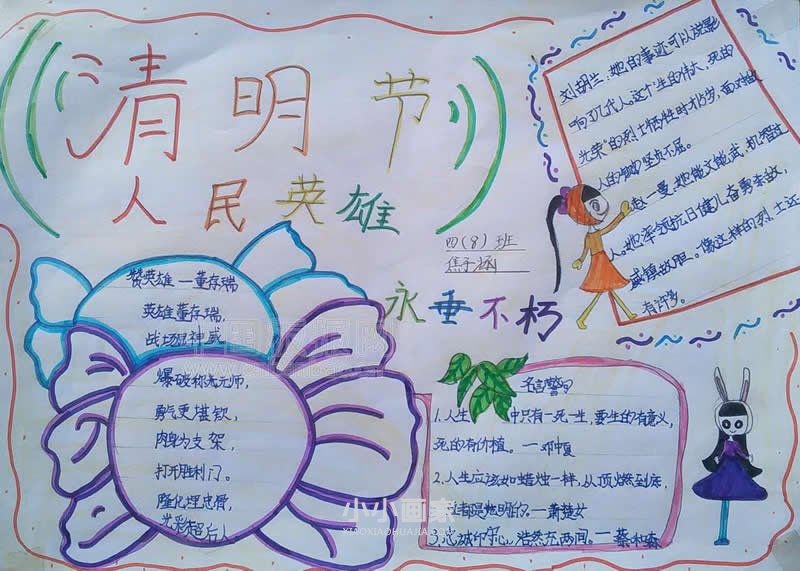 清明节
人民英雄
永垂不朽
四(8)班
赞英雄一董存瑞
英雄董存瑞,
战场显神威
爆破称为元帅,
勇气更堪钦,
肉身为支架,
打开胜利门。
隆化埋忠骨,
光彩招后人
刘胡兰:她的事迹可以说影
响了几代人。这个“生的伟大,死的
光荣”的烈士牺牲时才15岁,面对敌
人的铡刀坚贞不屈。
赵一曼:她能文能武,机智过
人。她率领抗日健儿奋勇杀敌,
威镇敌胆。像这样的烈士还
有许多。
名言警句
1.人生 中只有一死一生,要生的有意义,
死的有价值。一邓中夏
2.人生应该如蜡烛一样,从顶燃到底,
一直都是光明的。一萧楚女
3.忠诚印心,浩然充两间。一蔡和森
小小画家
XIAOXIAOHUAJIA.COM